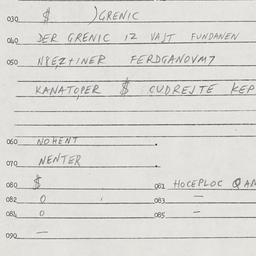 030 $ )GRENIC
040 DER GRENIC IZ VAJT FUNDANEN
050 FERDGANOVM7
KANATOPER $ CUDREJTE KEP
060 NOHENT .
070 NENTER .
080 $ 081 HOCEPLOC Q AM
082 0 083 —
084 0 085 —
090 —